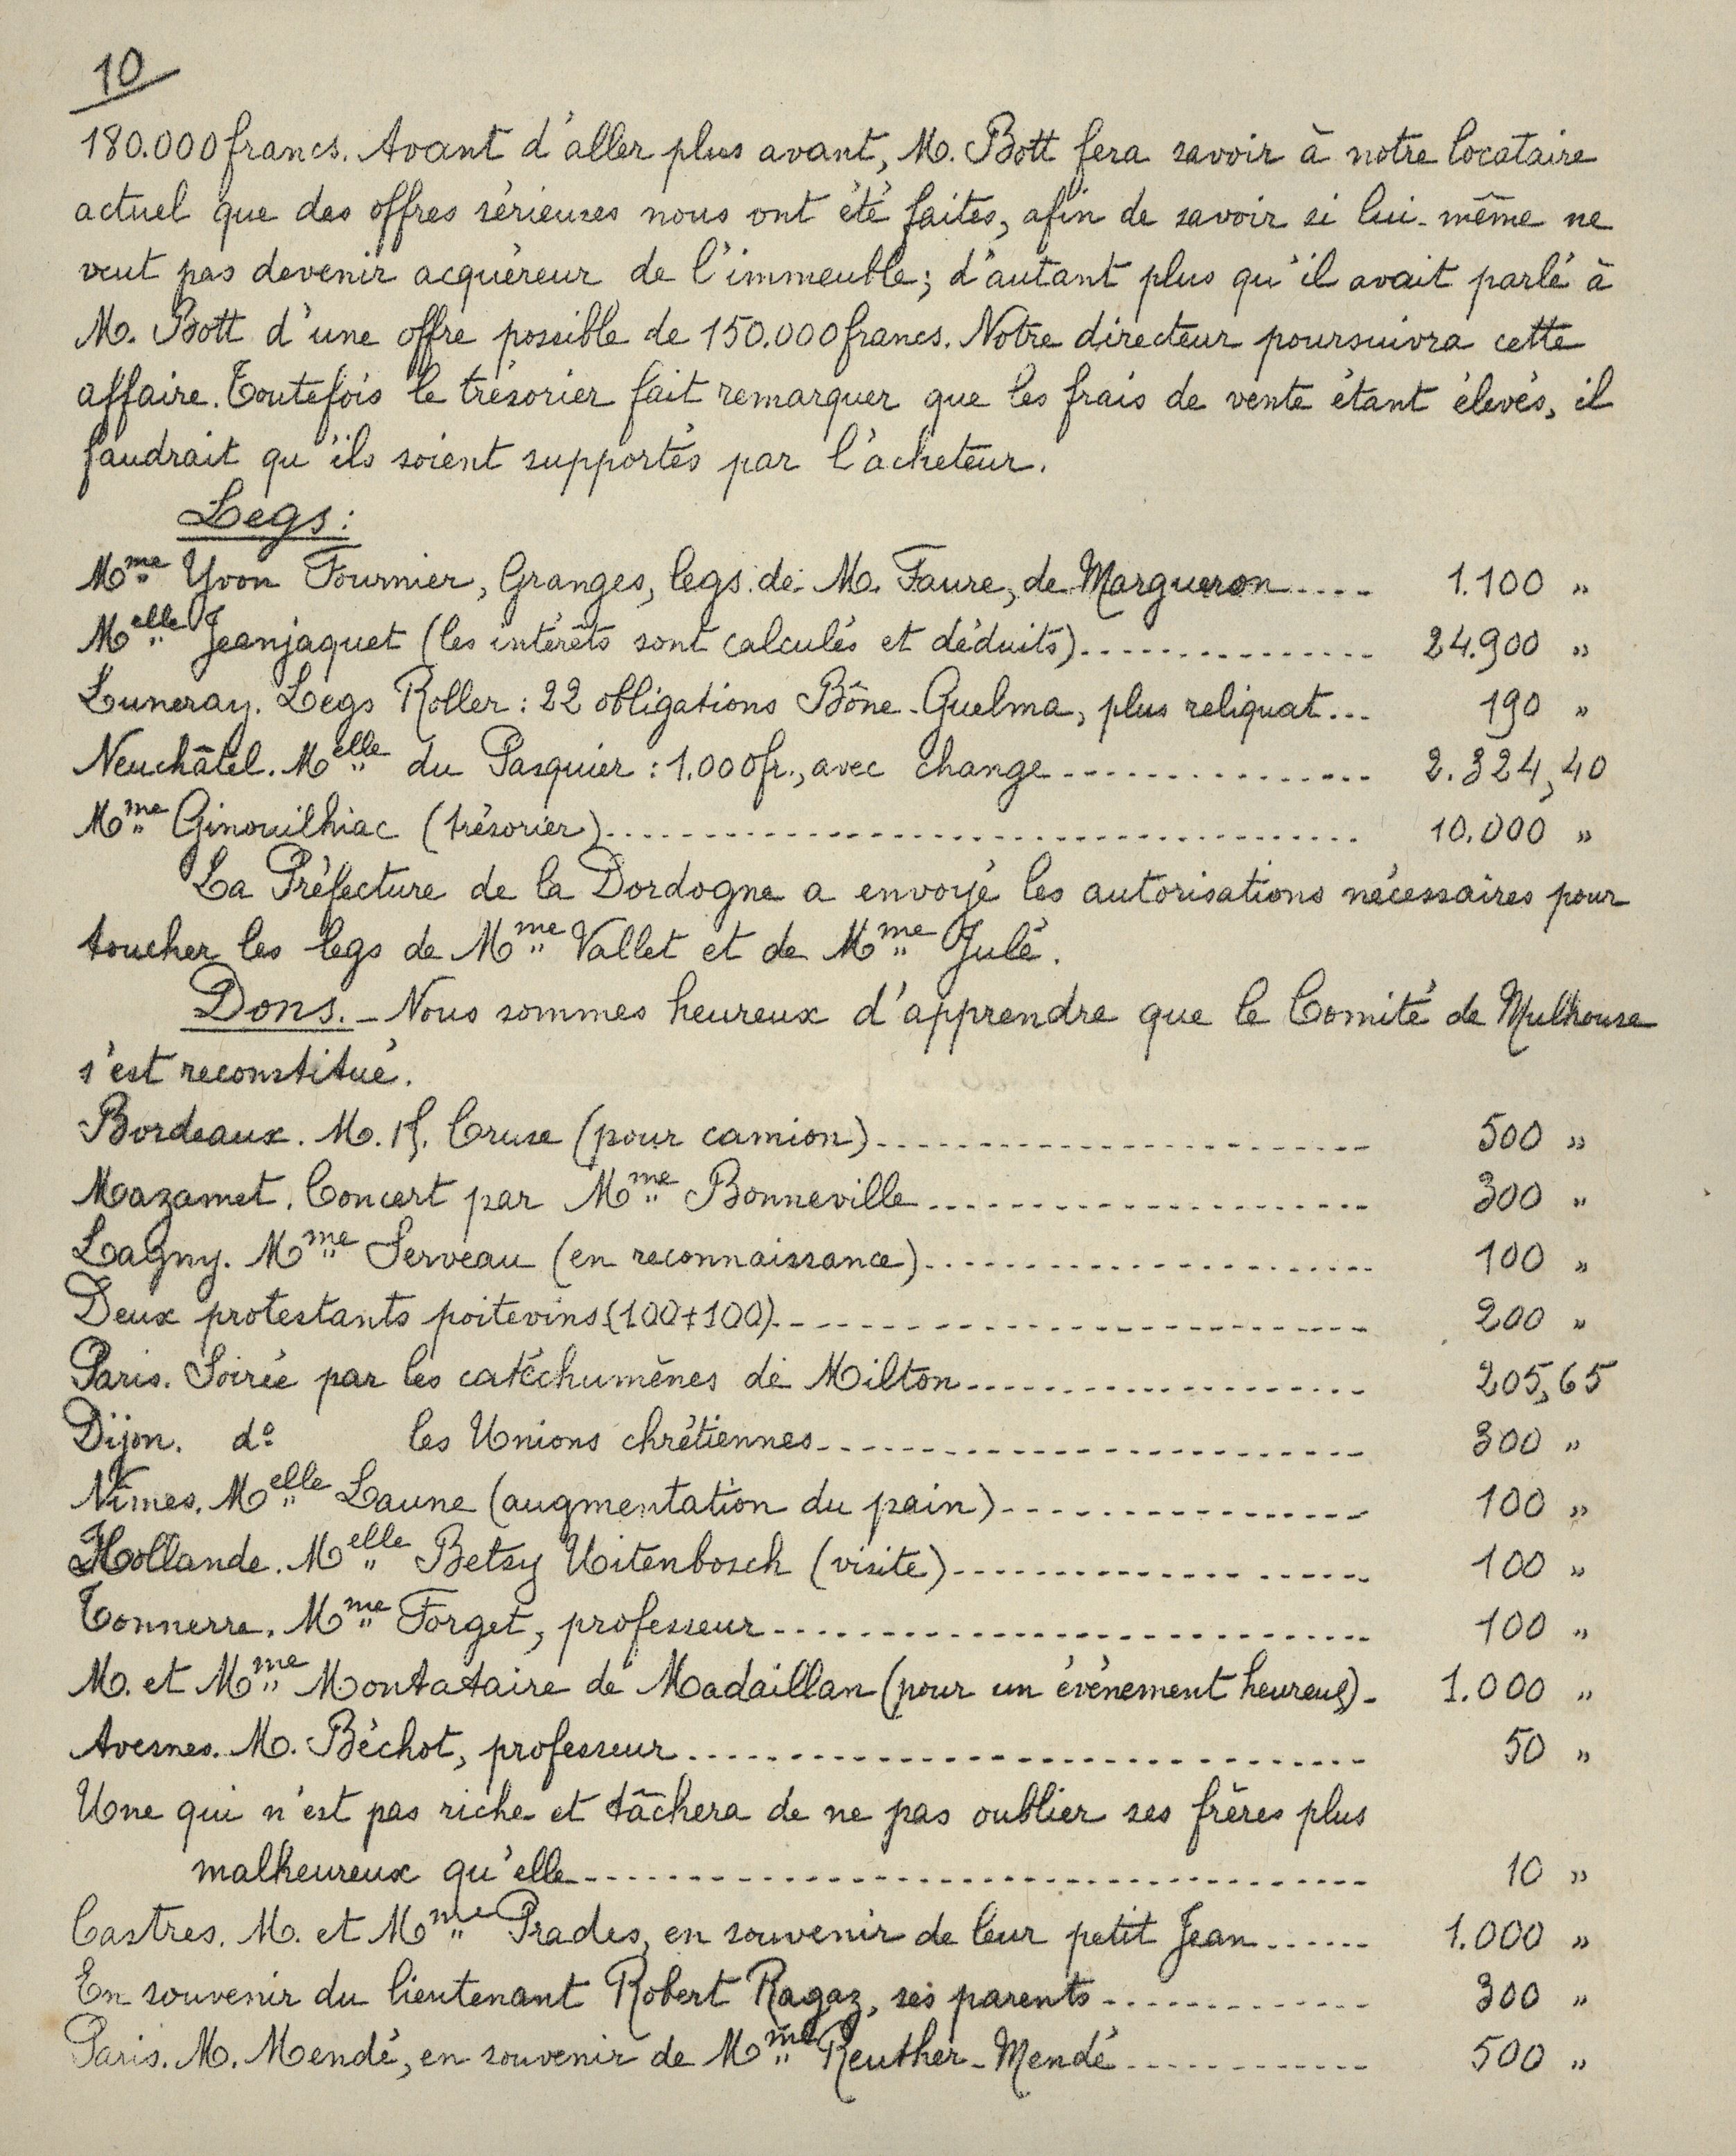 10
180.000 francs. Avant d'aller plus avant, M. Bott fera savoir à notre locataire
actuel que des offres sérieuses nous ont été faites, afin de savoir si lui-même ne
veut pas devenir acquéreur de l'immeuble; d'autant plus qu'il avait parlé à
M. Bott d'une offre possible de 150.000 francs. Notre directeur poursuivra cette
affaire. Toutefois le trésorier fait remarquer que les frais de vente étant élevés, il
faudrait qu'ils soient supportés par l'acheteur.
Legs:
Mme Yvon Fournier, Granges, legs de M. Faure, de Margueron..... 1.100 "
Melle Jeanjaquet (les intérêts sont calculés et déduits)............... 24.900 "
Luneray. Legs Roller: 22 obligations Bône-Guelma, plus reliquat... 190 "
Neuchâtel. Melle du Pasquier: 1.000 fr., avec change................ 2.324,40
Mme Ginouilhiac (trésorier)........................................ 10.000 "
La Préfecture de la Dordogne a envoyé les autorisations nécessaires pour
toucher les legs de Mme Vallet et de Mme Julé.
Dons. - Nous sommes heureux d'apprendre que le Comité de Mulhouse
s'est reconstitué.
Bordeaux. M. H. Cruse (pour camion)........................... 500 "
Mazamet. Concert par Mme Bonneville........................ 300 "
Lagny. Mme Serveau (en reconnaissance)........................ 100 "
Deux protestants poitevins (100+100)............................... 200 "
Paris. Soirée par les catéchumènes de Milton...................... 205,65
Dijon. do les Unions chrétiennes............................. 300 "
Nîmes. Melle Laune (augmentation du pain).................... 100 "
Hollande. Melle Betsy Uitenbosch (visite)...................... 100 "
Tonnerre. Mme Forget, professeur................................ 100 "
M. et Mme Montataire de Madaillan (pour un événement heureux). 1.000 "
Avesnes. M. Béchot, professeur.................................... 50 "
Une qui n'est pas riche et tâchera de ne pas oublier ses frères plus
malheureux qu'elle.......................................... 10 "
Castres. M. et Mme Prades, en souvenir de leur petit Jean...... 1.000 "
En souvenir du lieutenant Robert Ragaz, ses parents............. 300 "
Paris. M. Mendé, en souvenir de Mme Reuther-Mendé............. 500 "